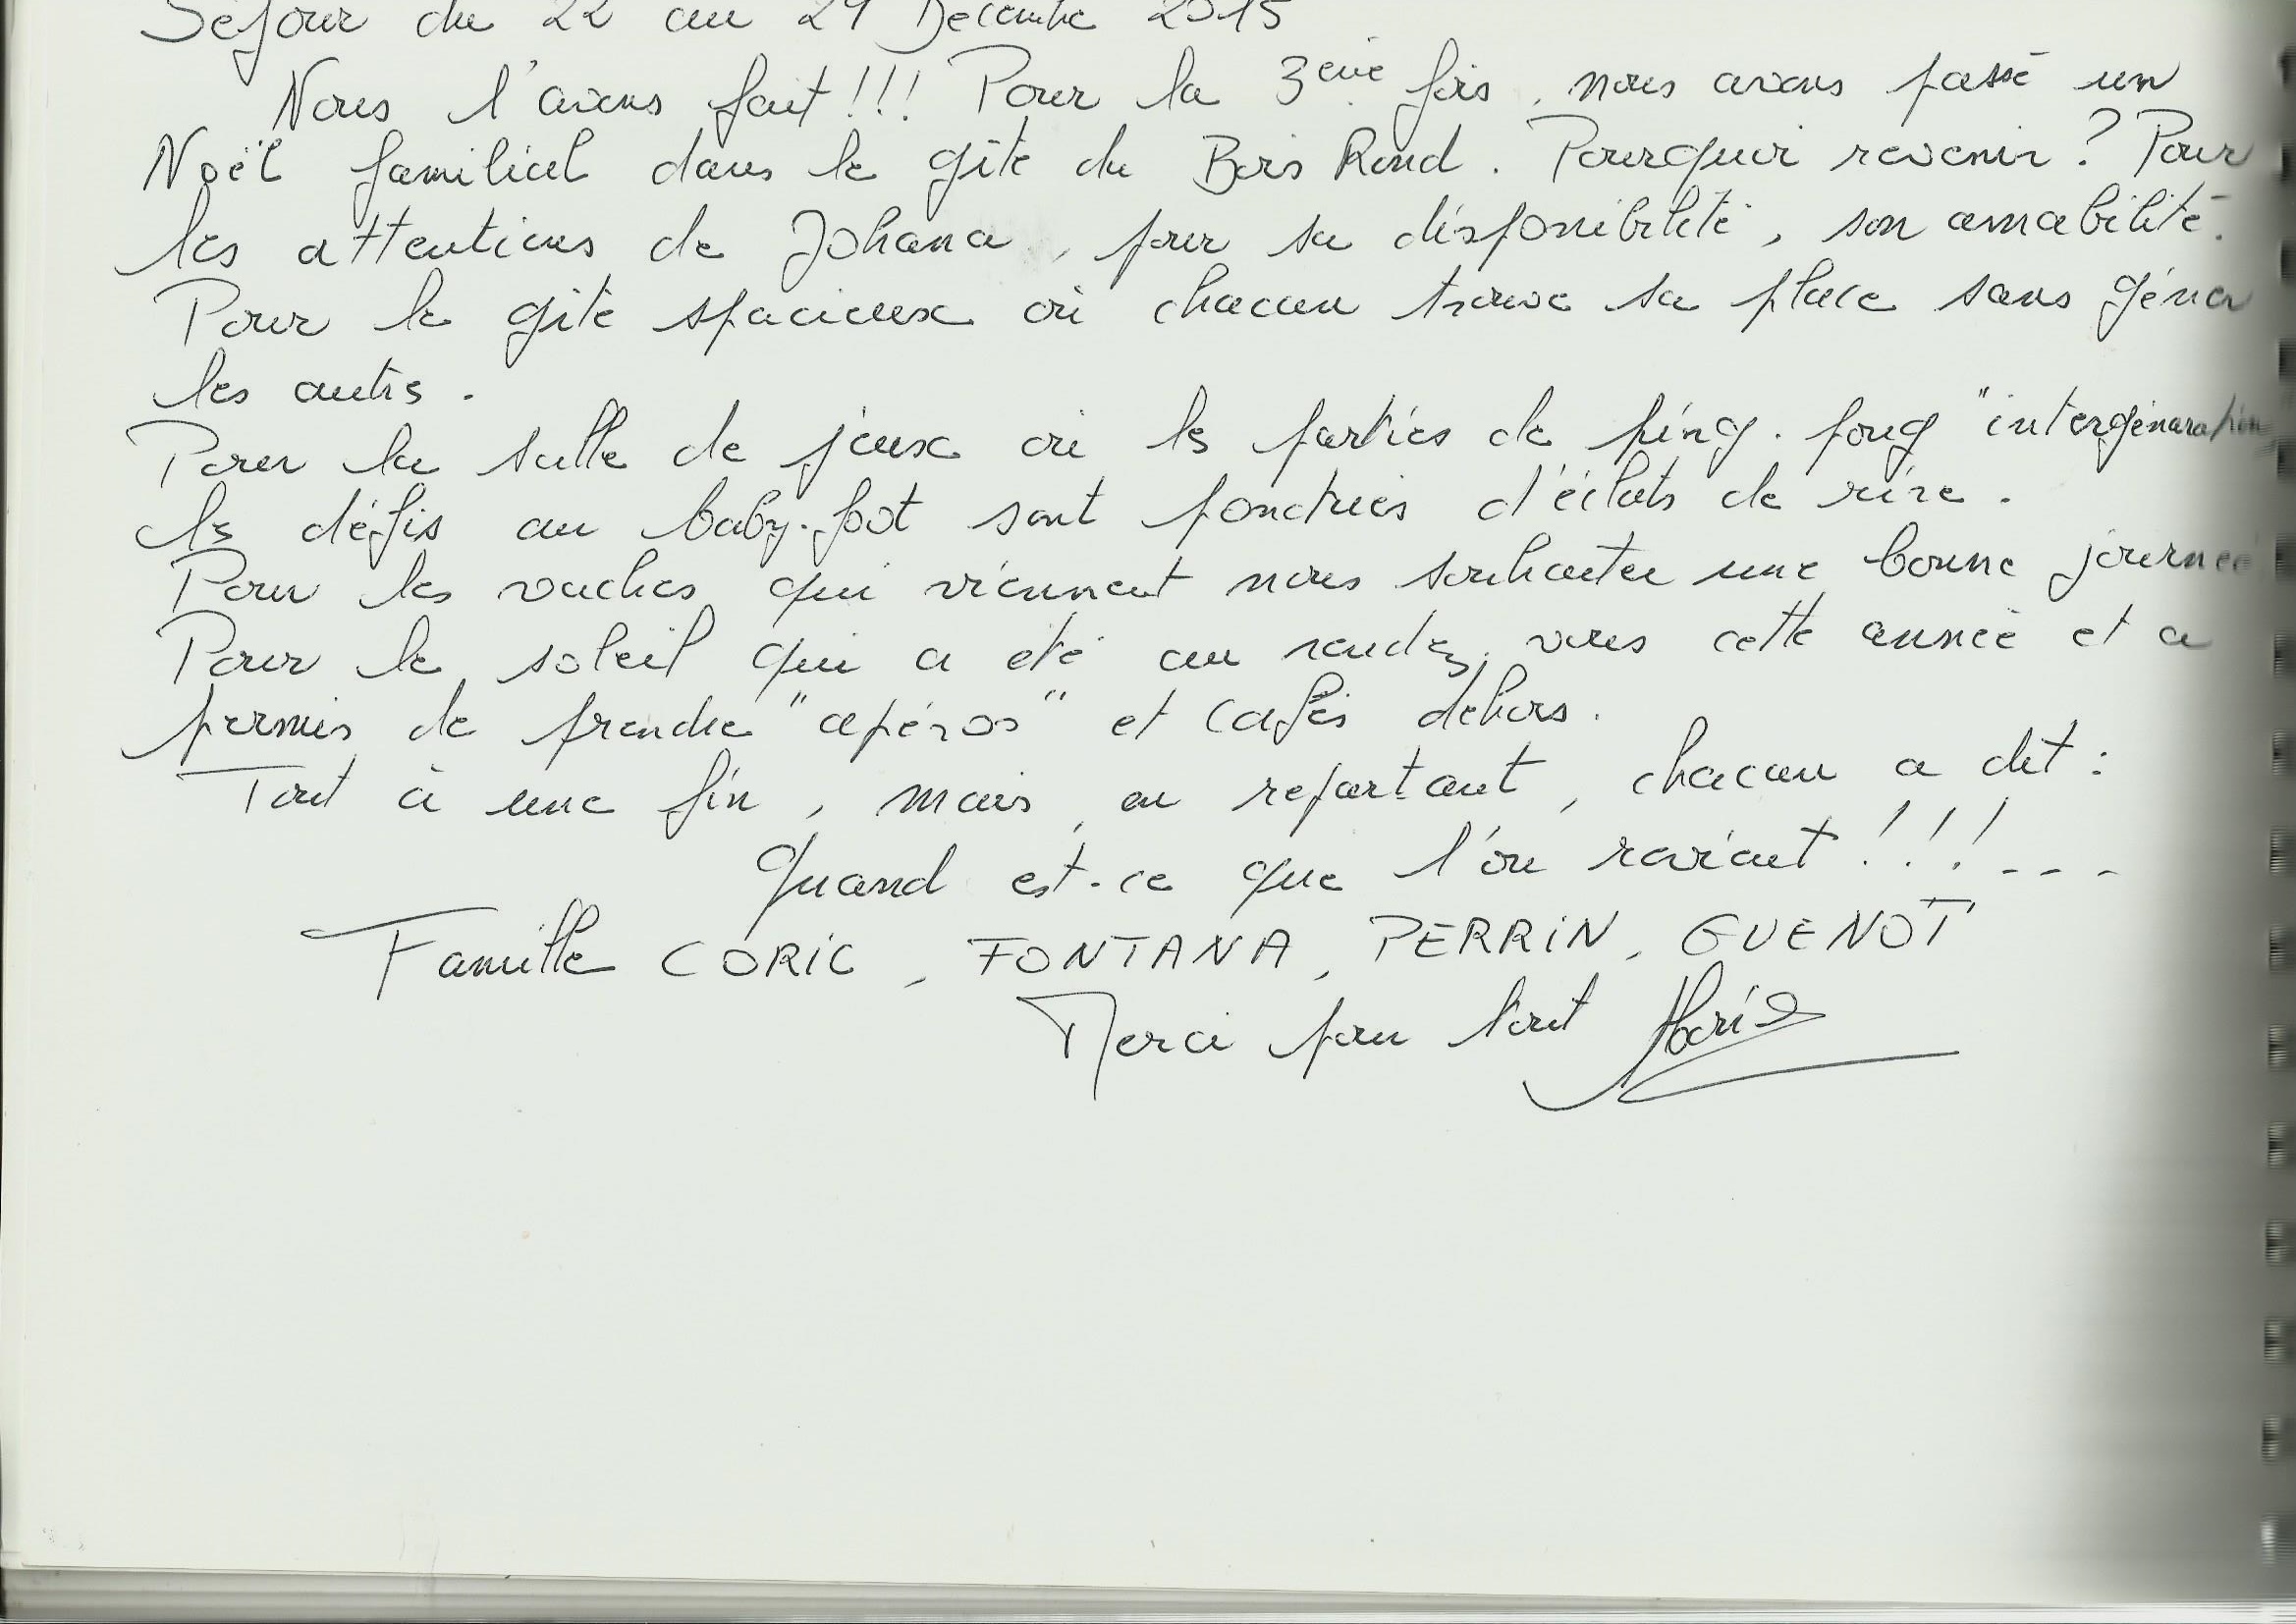 Séjour du 22 au 29 Décembre 2015
Nous l'avons fait !!! Pour la 3ème fois, nous avons passé un
Noël familial dans le gîte du Bois Rond. Pourquoi revenir ? Pour
les attentions de Johana, pour sa disponibilité, son amabilité.
Pour le gîte spacieux où chacun trouve sa place sans gêner
les autres.
Pour la salle de jeux où les parties de ping-pong "intergénération
les défis au baby-foot sont ponctués d'éclats de rire.
Pour les vaches qui viennent nous souhaiter une bonne journée
Pour le soleil qui a été au rendez-vous cette année et a
permis de prendre "apéros" et cafés dehors.
Tout à une fin, mais, en repartant, chacun a dit :
Quand est-ce que l'on revient !!! ---
Famille CORIC, FONTANA, PERRIN, GUENOT
Merci pour tout